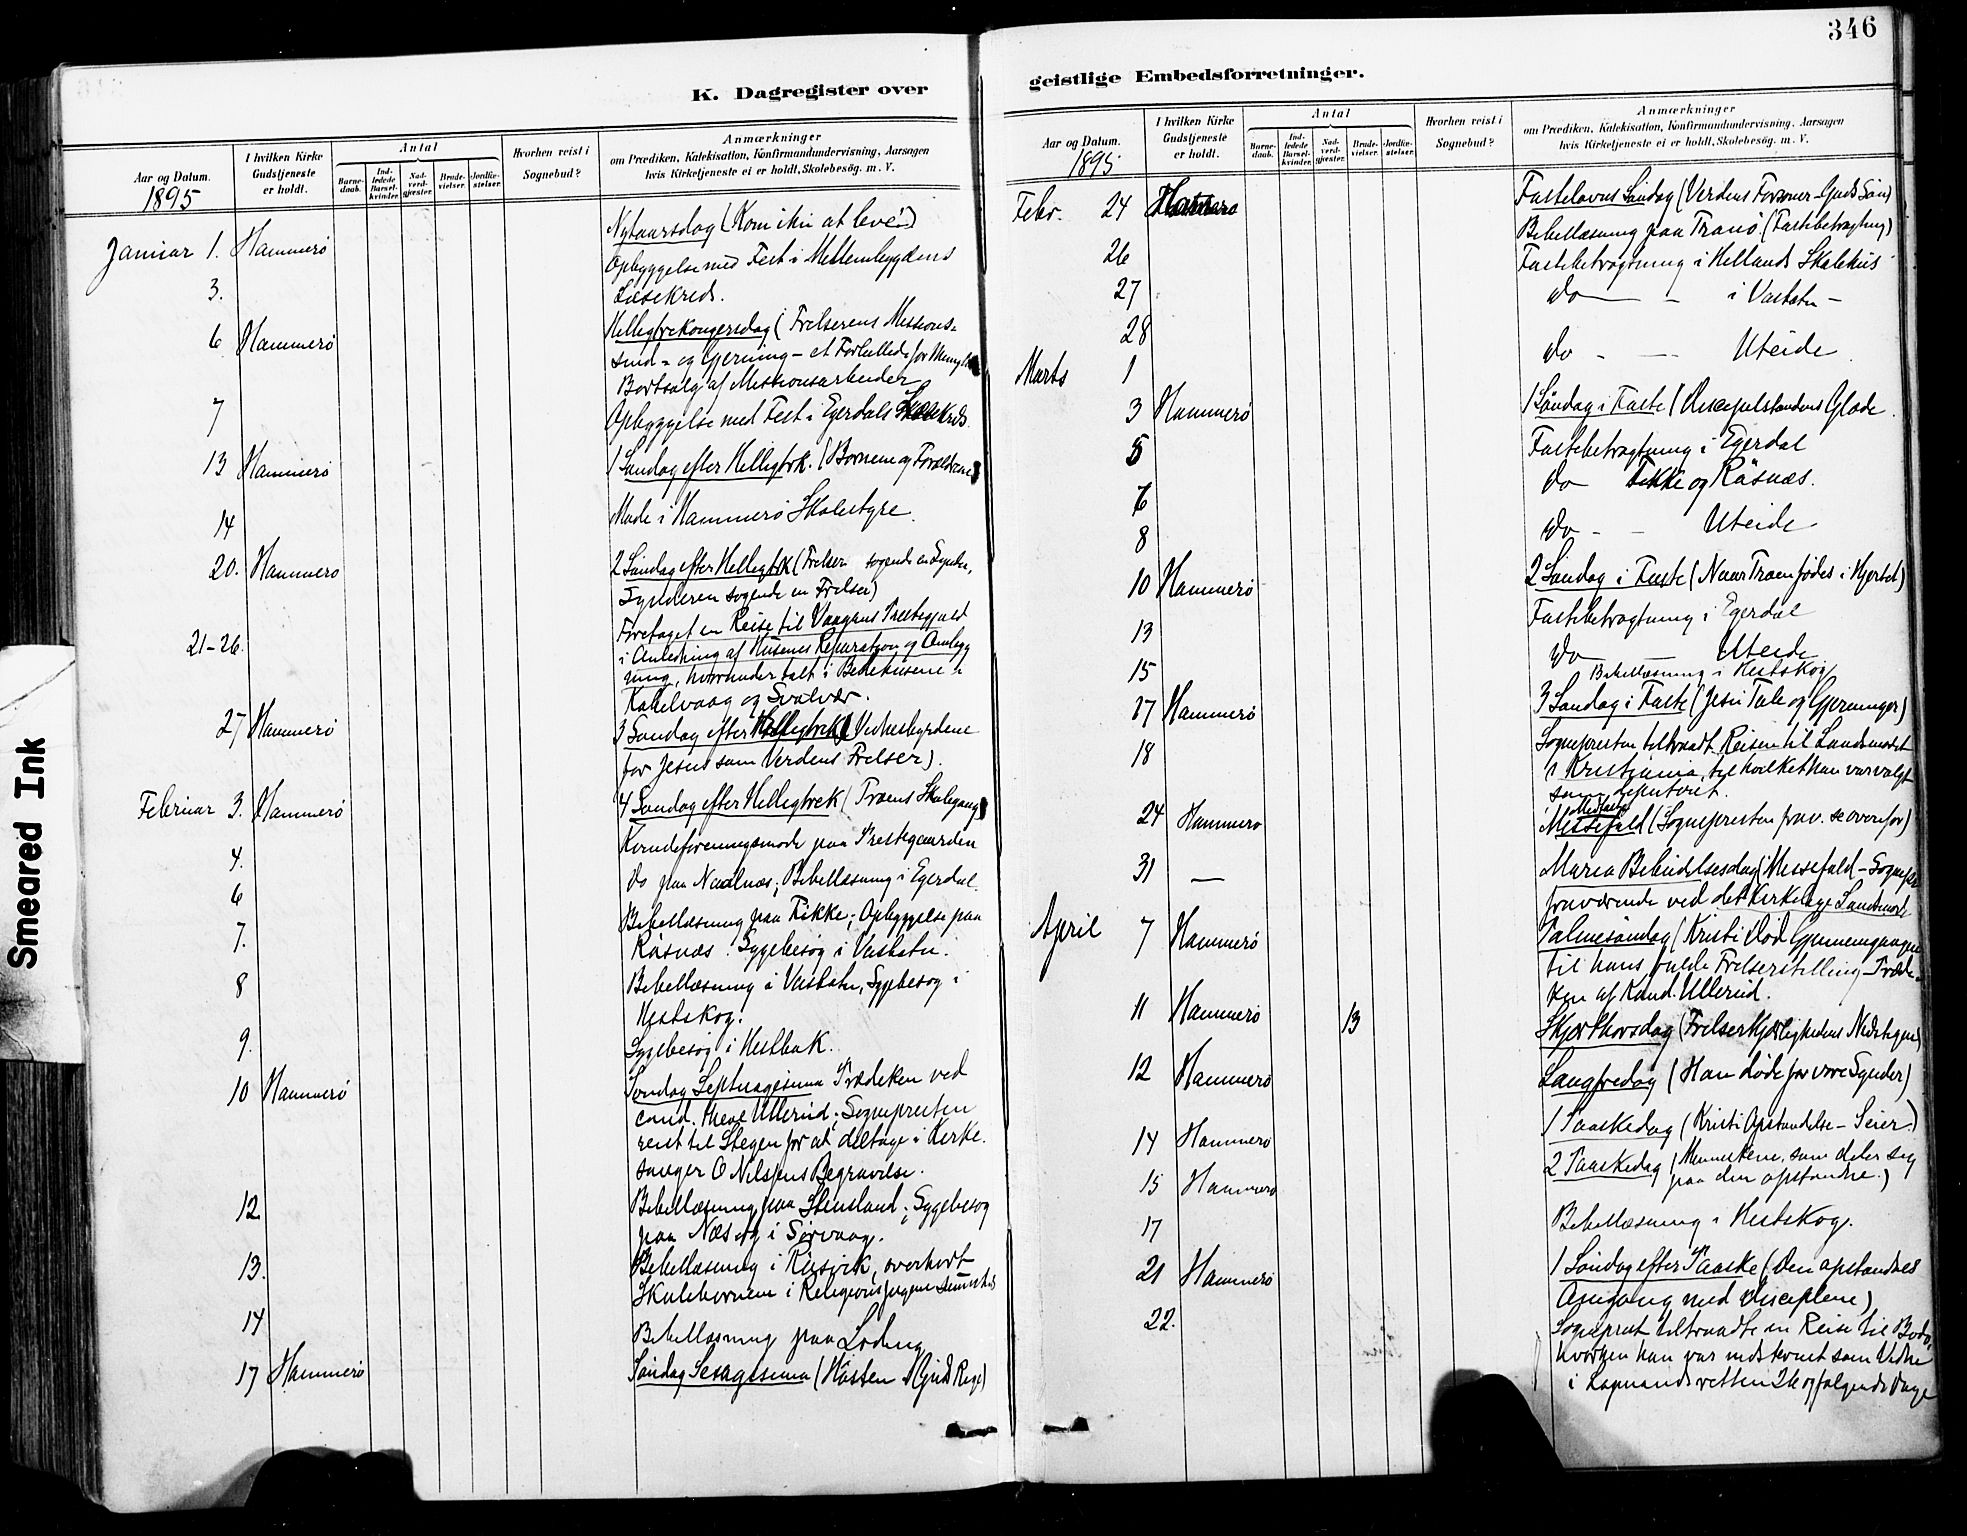 346
K. Dagregister over
geistlige Embedsforretninger.
Aar og Datum.
1895
I hvilken Kirke Gudstjeneste er holdt.
Antal
Barne- daab.
Ind- ledede Barsel- kvinder.
Nad- verd- gjæster.
Brude- vielser.
Jordfæ- stelser.
Hvorhen reist i Sognebud?
Anmærkninger
om Prædiken, Katekisation, Konfirmandundervisning, Aarsagen
hvis Kirketjeneste ei er holdt, Skolebesøg. m. V.
Januar 1. Hammerø Nytaarsdag (Kom ihu at leve!)
3. Opbyggelse med Fest i Mellembygdens
Læsekreds.
6 Hammerø Helligtrekongersdag (Frelserens Missions-
sind - og Gjerning - et Forbillede for
Bortsalg af Missionsarbeider
7 Opbyggelse med Fest i Egerdals
13 Hammerø 1 Søndag efter Helligtrek. (Børnene og Forældrene
14 Møde i Hammerø Skolestyre.
20. Hammerø 2 Søndag efter Helligtrk (Frelser søgende en Synder,
Synderen søgende en Frelser)
21-26. Foretaget en Reise til Vaagens Præstegjeld
i Anledning af Husenes Reparation og Ombygg
ning, hvorunder talt i Bedehusene i
Kabelvaag og Svolvær.
27 Hammerø 3 Søndag efter Helligtrek (Vidnesbyrdene
for Jesus som Verdens Frelser).
Februar 3. Hammerø 4 Søndag efter Helligtrek (Troens Skolegang
4. Kvindeforeningsmøde paa Prestegaarden
6 Do paa Naalnæs; Bibellæsning i Egerdal.
7. Bibellæsning paa Fikke; Opbyggelse paa
Råsnæs. Sygebesøg i Vasbotn.
8 Bibellæsning i Vasbotn, Sygebesøg i
Hestskog.
9. Sygebesøg i Hestbak.
10 Hammerø Søndag Septuagesima Prædiken ved
cand. theol Ullerud; Sognepresten
reist til Stegen for at deltage i Kirke-
sanger O Nilssens Begravelse.
12 Bibellæsning paa Stensland; Sygebesøg
paa Næs og i Sørvaag.
13. Bibellæsning i , overhørt
Skolebørnene i Religionsfagene
14 Bibellæsning paa Løding
17 Hammerø Søndag Sexagesima (Høsten i Guds Rige)
Aar og Datum.
1895
I hvilken Kirke Gudstjeneste er holdt.
Antal
Barne- daab.
Ind- ledede Barsel- kvinder.
Nad- verd- gjæster.
Brude- vielser.
Jordfæ- stelser.
Hvorhen reist i Sognebud?
Anmærkninger
om Prædiken, Katekisation, Konfirmandundervisning, Aarsagen
hvis Kirketjeneste ei er holdt, Skolebesøg. m. V.
Febr. 24 Hammerø Fastelavns Søndag (Verdens Forsoner - Guds Søn)
26 Bibellæsning paa Tranø. (Fastebetragtning)
27 Fastebetragtning i Hellands Skolehus
28 do — - i Vasbotn -
Marts 1 do - — Uteide
3 Hammerø 1 Søndag i Faste (Discipelstandens Glæde
5 Fastebetragtning i Egerdal
6 do Fikke og Råsnæs.
8 do - - Uteide
10 Hammerø 2 Søndag i Faste (Naar Troen fødes i Hjertet)
13 Fastebetragtning i Egerdal
15 do — Uteide
Bibellæsning i Hestskog
17 Hammerø 3 Søndag i Faste (Jesu Tale og Gjerninger)
18 Sognepresten tiltraadt Reisen til Landsmødet
i Kristiania, til hvilket han var valgt
som deputeret.
24 Hammerø Midfaste
Messefald (Sognepresten frav. se ovenfor)
31 — Maria Bebudelsesdag (Messefald - Sognepr
fraværende ved det kirkelige Landsmøde
April 7 Hammerø Palmesøndag (Kristi Død Gjennemgangen
til hans fulde Frelserstilling - Prædi-
ken af Kand. Ullerud.
11 Hammerø 13 Skjærthorsdag (Frelserkjærlighedens
12 Hammerø Langfredag (Han døde for vore Synder)
14 Hammerø 1 Paaskedag (Kristi Opstandelse - Seier)
15 Hammerø 2 Paaskedag (Menneskene, som deler sig
paa den opstandne.)
17 Bibellæsning i Hestskog.
21 Hammerø 1 Søndag efter Paaske (Den opstandnes
Omgang med Disciplene)
22. Sogneprest tiltraadte en Reise til Bodø,
hvorhen han var indstevnt som Vidne
i Lagmandsretten 26 og følgende Dage
Smeared Ink